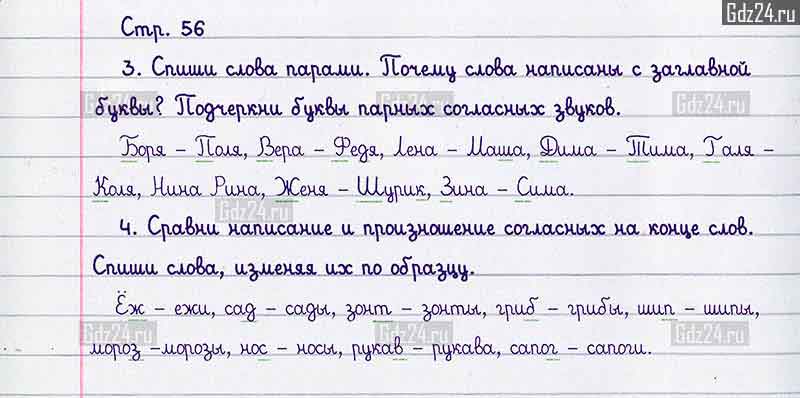 Gdz24.ru
Стр. 56
3. Спиши слова парами. Почему слова написаны с заглавной
буквы? Подчеркни буквы парных согласных звуков.
Боря – Поля, Вера – Федя, Лена – Маша, Дима – Тима, Галя –
Коля, Нина Рина, Женя – Шурик, Зина – Сима.
4. Сравни написание и произношение согласных на конце слов.
Спиши слова, изменяя их по образцу.
Ёж – ежи, сад – сады, зонт – зонты, гриб – грибы, шип – шипы,
мороз –морозы, нос – носы, рукав – рукава, сапог – сапоги.